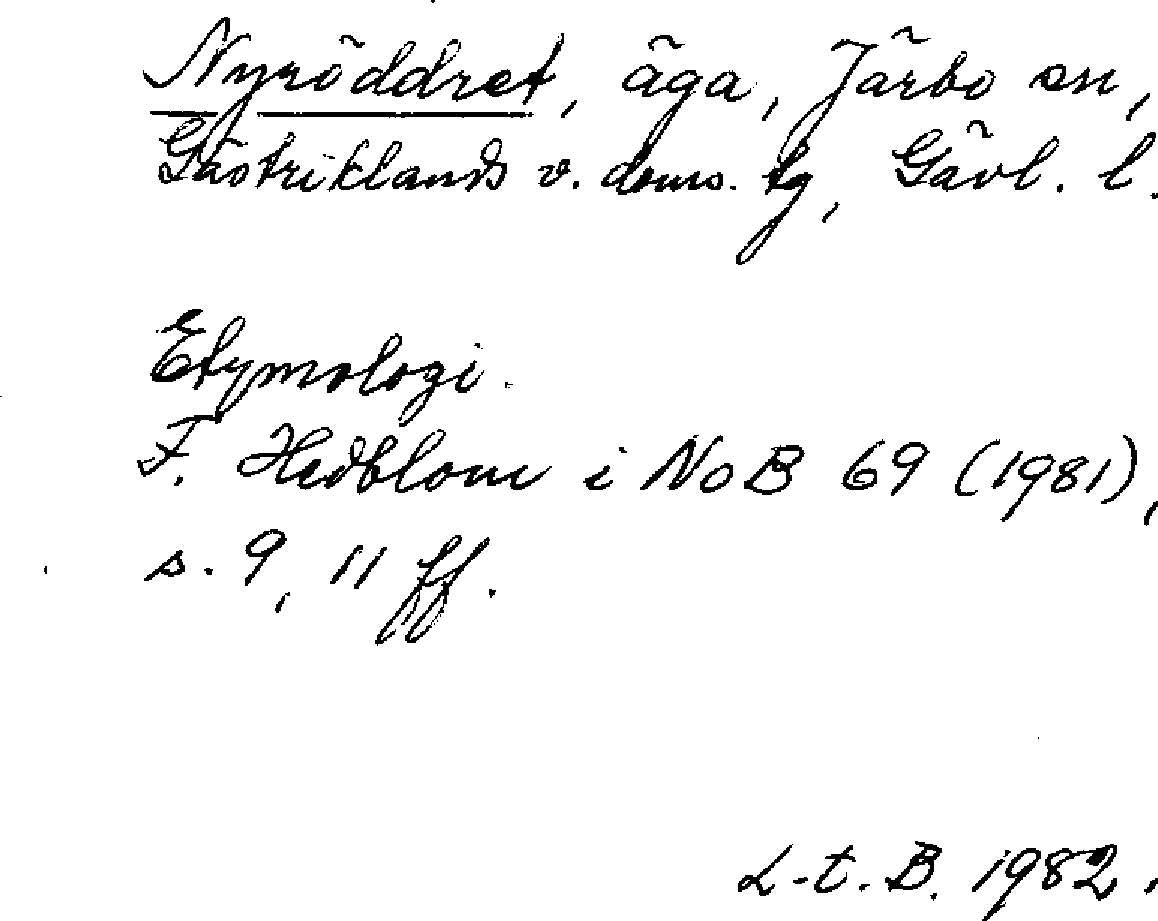 Nyröddret, äga, Järbo sn,
Gästriklands v. doms. tg, Gävl. l.
Etymologi.
F. Hedblom i NoB 69 (1981),
s. 9, 11 ff.
L-t. B. 1982.